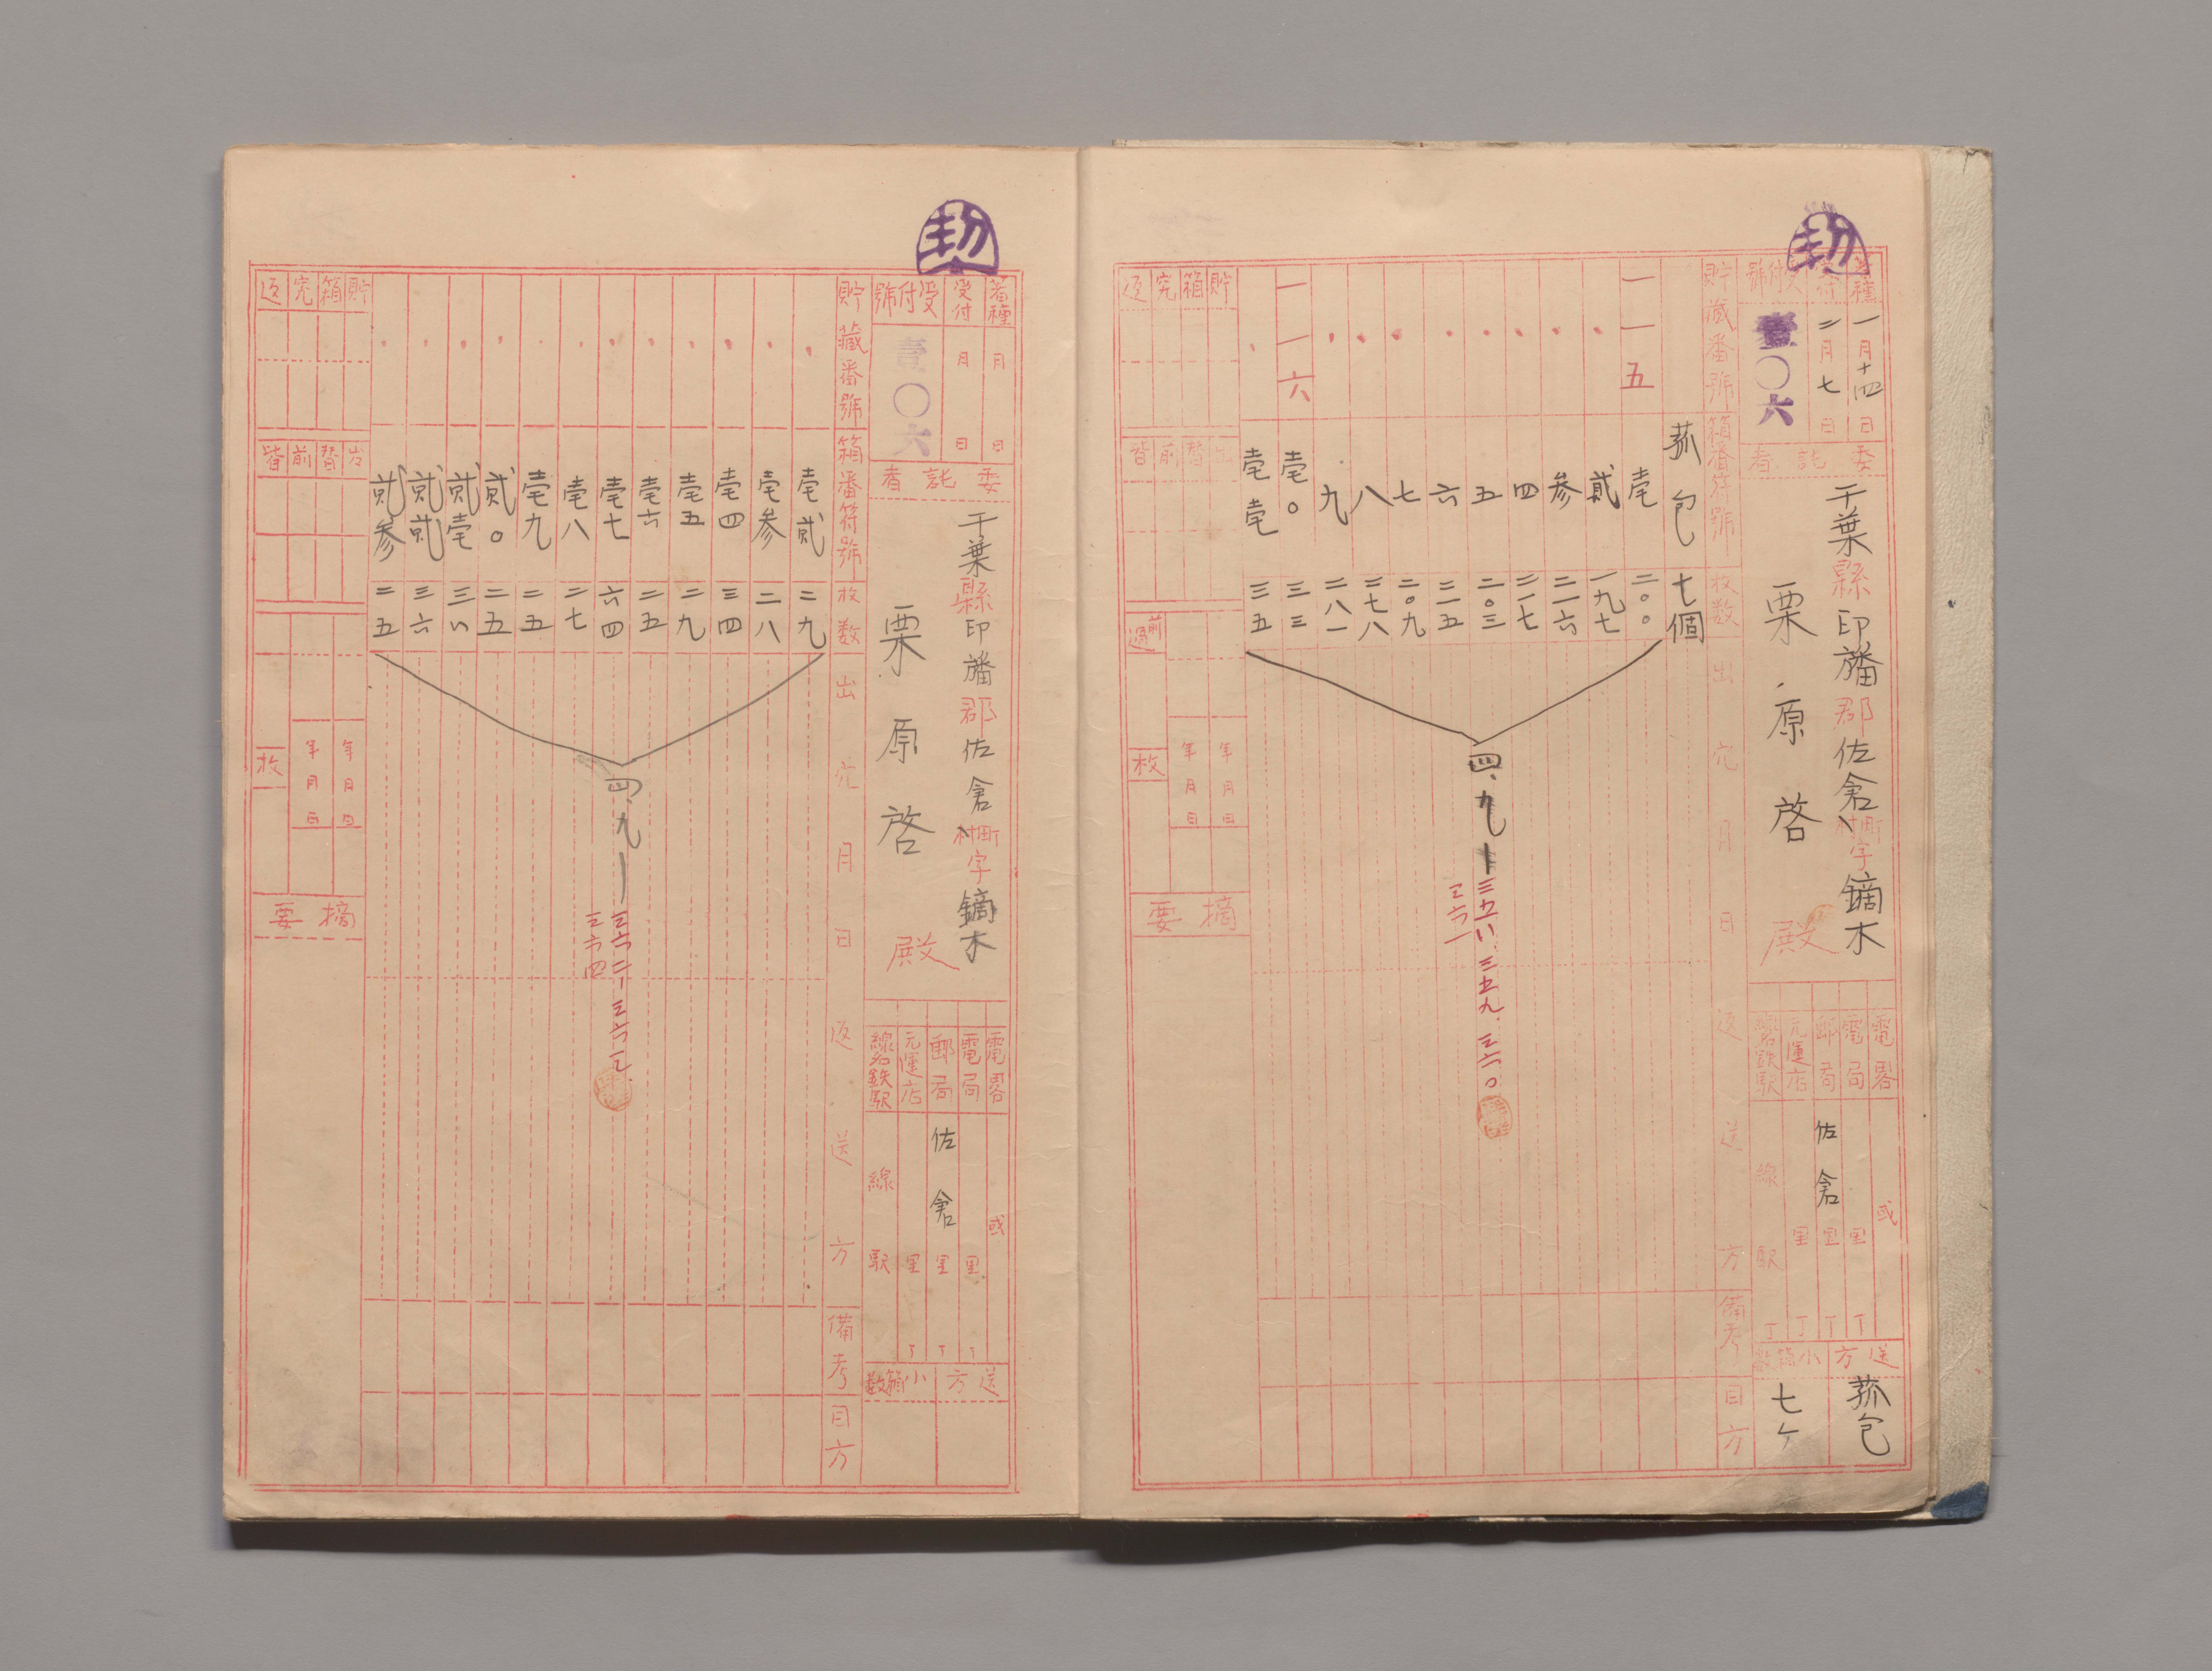 契
着種
一月十四日
受付
二月七日
受付號
壹〇六
委託者
千葉縣印旛郡佐倉町村字鏑木
栗原啓殿
電畧
或
電局
里
丁
郵局
佐倉
里
丁
元運店
里
丁
線名鉄駅
線
駅
丁
送方
菰包
小箱数
七ケ
貯藏番號
箱番符號
枚数
出穴月日
返送方
備考
目方
菰包
七個
一一五
壱
二〇〇
貳
一九七
参
二一六
四
二一七
五
二〇三
六
二一五
七
二〇九
八
二七八
九
二八一
一一六
壱〇
三三
壱壱
三五
四、九
三五八、三五九、三六〇
三六一
貯箱究返
出替前皆
前過
年月日
年月日
枚
摘要
契
着種
月日
受付
月日
受付號
壹〇六
委託者
千葉縣印旛郡佐倉町村字鏑木
栗原啓殿
電畧
或
電局
里
丁
郵局
佐倉
里
丁
元運店
里
丁
線名鉄駅
線
駅
送方
小箱数
貯藏番號
箱番符號
枚数
出穴月日
返送方
備考
目方
壱貳
二九
壱参
二八
壱四
三四
壱五
二九
壱六
二五
壱七
六四
壱八
二七
壱九
二五
貳〇
二五
貳壱
三八
貳貳
三六
貳参
二五
四、九
三六二、三六三、
三六四
貯箱究返
出替前皆
年月日
年月日
枚
摘要